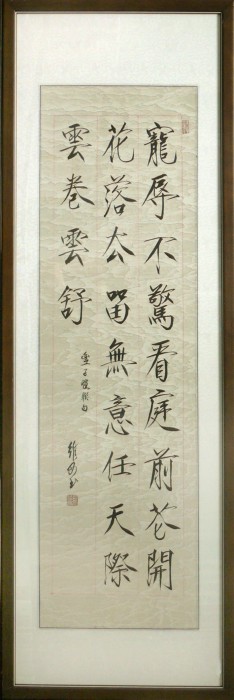 寵辱不驚看庭前花開
花落去留無意任天際
雲卷雲舒